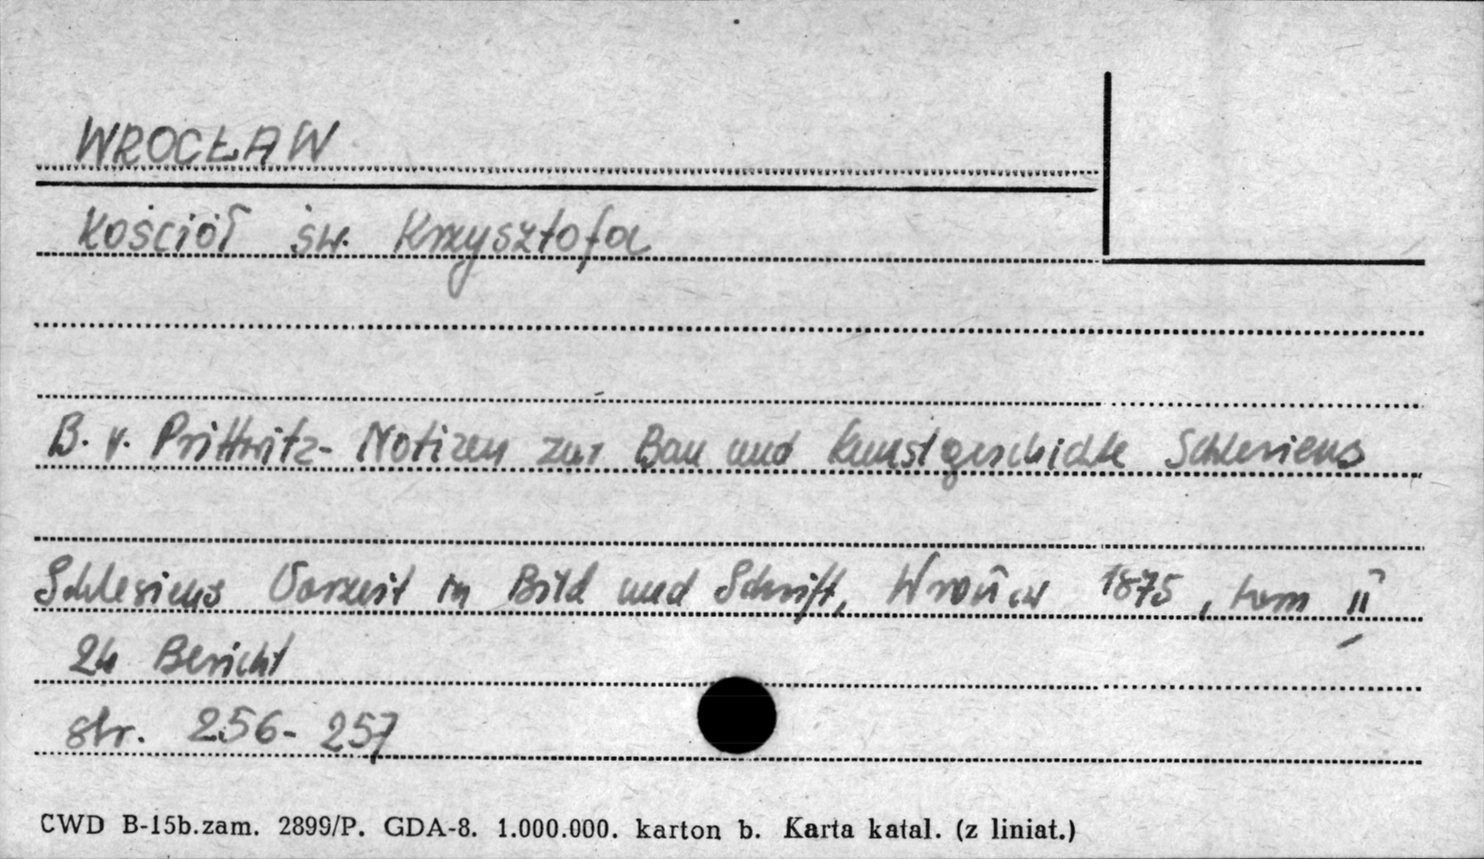 WROCŁAW
Kościół św. Krzysztofa
B. v. Prittwitz - Notizen zur Bau und Kunstgeschichte Schlesiens
Schlesiens Vorzeit in Bild und Schrift, Wrocław 1875, tom II
24 Bericht
str. 256-257
CWD B-15b.zam. 2899/P. GDA-8. 1.000.000. karton b. Karta katal. (z liniat.)